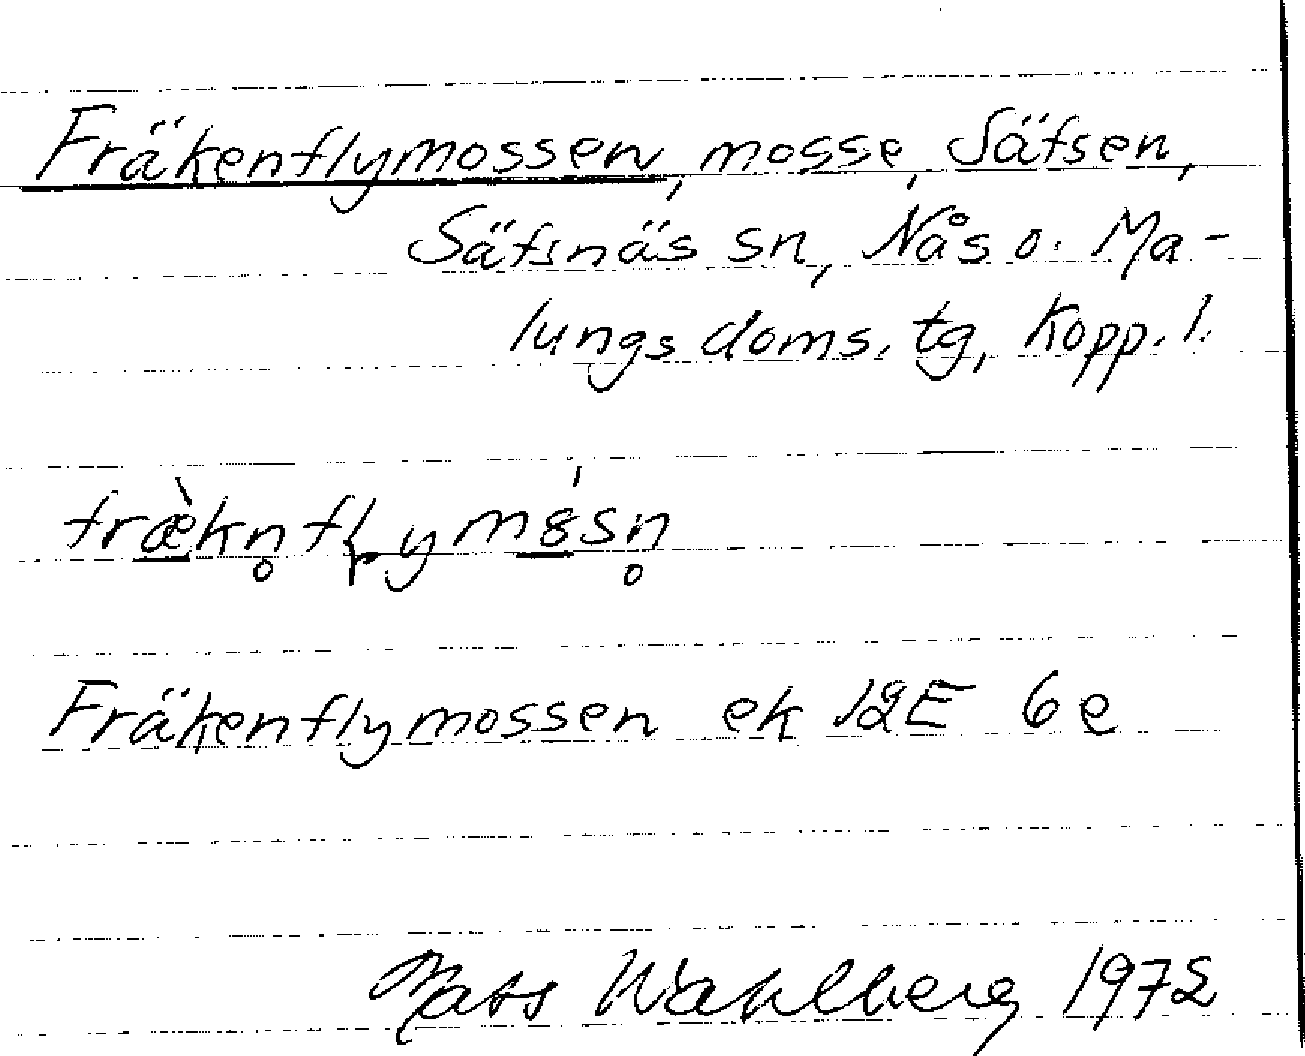 Fräkenflymossen, mosse, Säfsen,
Säfsnäs sn, Nås o. Ma-
lungs doms. tg, Kopp. l.
fræ̀kn̥flymösn̥
Fräkenflymossen ek 12E 6e
Mats Wahlberg 1972